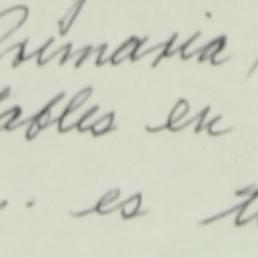 Primaria
ables en
.. es